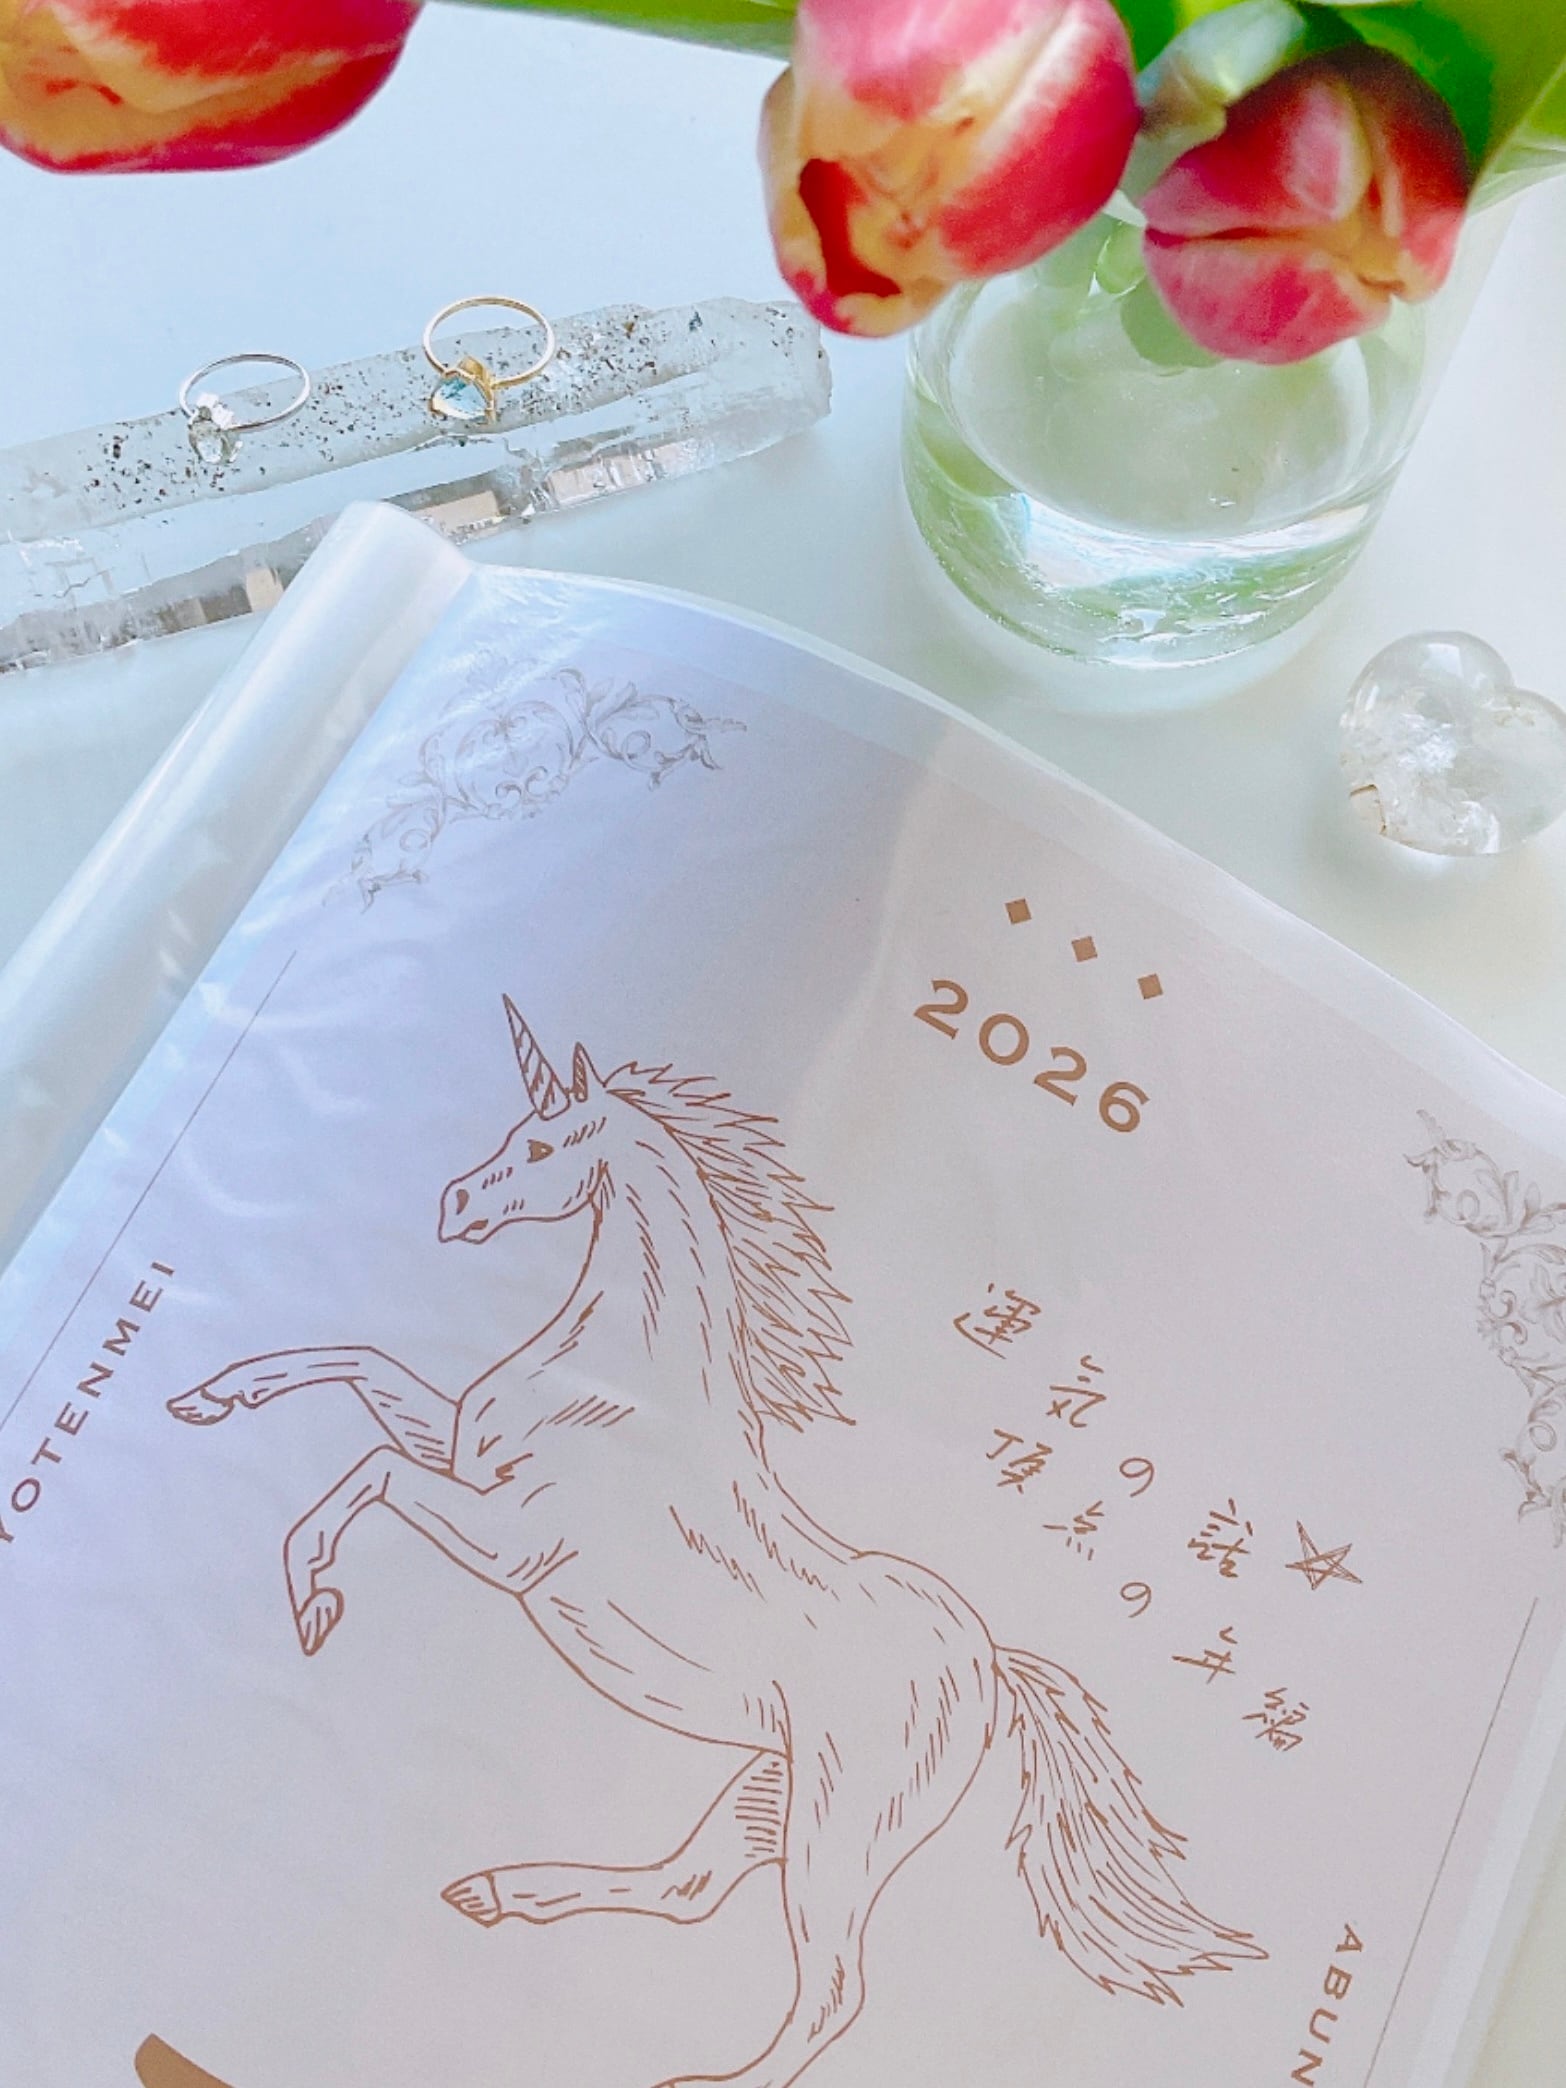 2026
運気の話☆
頂点の年編
YOTENMEI
ABUN